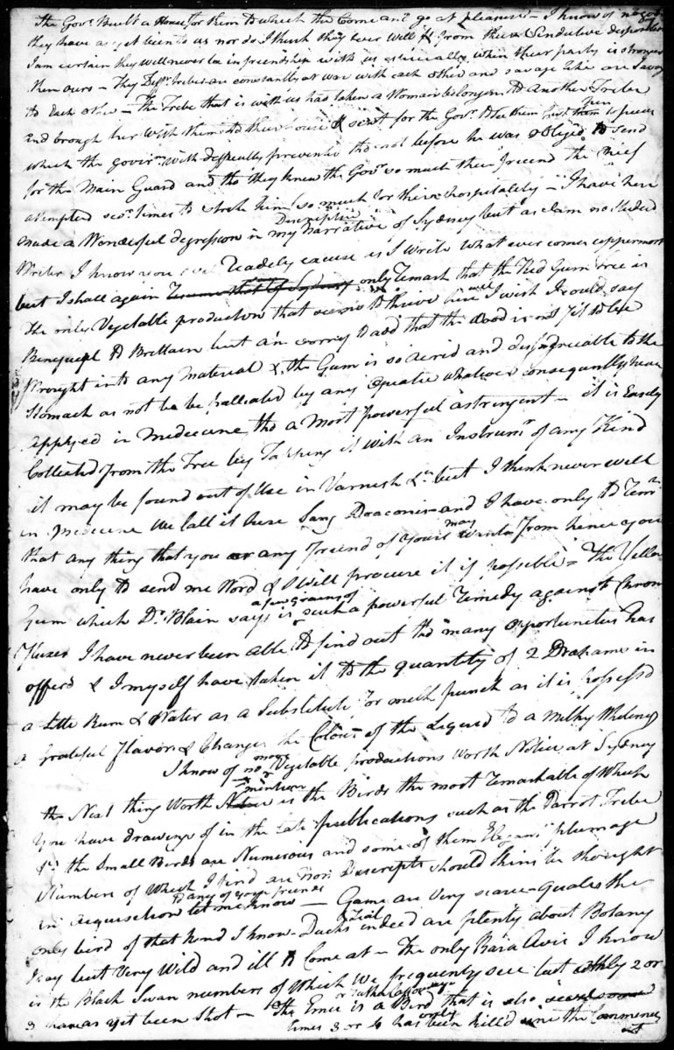 the Govr. Built a House for them to which the Come and go at pleasure - I know of no good
they have as yet been to us nor do I think they ever will & from their Vindictive disposition
I am certain they will never be in friendship with us especially when their party is stronger
then ours - They Diffr. tribes are constantly at war with each other and savage like are
to Each other - The Tribe that is with us had taken a Woman belonging to Another Tribe
and brough her With them to their house & sent for the Govr. to see them
which the govr. with difficulty prevented tho not before he was oblijed to send
for the Main Guard and tho they knew the Govr. so much their freind the chief
attempted sevl. times to stroke him (so much for their hospitality - I have here
made a Wonderful degression in my Narrative of Sydney but as I am no studied
Discriptive
Writer I know you Readely excuse as I write what ever comes uppermost
but I shall again only Remark that the Red Gum Tree is
the only Vegetable production that seems to thrive here I wish I could say
well
Beneficial to Brittain but am worry to add that the Wood is not fit to be
Wrought into any Material & the Gum is so acrid and disagreeable to the
Stomach as not to be palliated by any Opiate whatever consequently never
applyed in Medecine tho a Most powerful astringent - it is Easely
Collected from the Tree by Tapping it with an Instrumt. of any Kind
it may be found out of Use in Varnish &c but I think never will
in Medecine We call it here Sang Draconis and I have only to
that any thing that you or any freind of yours may Wish from hence you
have only to send me Word & I Will procure it if possible - The Yellow
Gum which Dr. Blain says is such a powerful Remedy against Chron
a few Grains of
Fluxes I have never been able to find out tho many opportunetus has
offerd & I myself have taken it to the quantity of 2 Drahams in
a little Rum & Water as a Substitute for milk punch as it is possess'd
a grateful flavor & Changes the Colour of the Liquid to a Milky Wheleney
I know of no more Vegetable productions worth Notice at Sydney
the Next thing Worth mention is the Birds the most Remarkable of Which
You have drawings of in the late publications such as the Parrot Tribe
&c the Small Birds are Numerous and some of them Elegant plumage
Numbers of Which I find are Non Descripts should thins be thought
in requisetion to any of your freinds let me know - Game are very scarce - Quales the
only bird of that kind I know - Ducks & Teal indeed are plenty about Botany
Bay but Very Wild and ill to Come at - The only Rara Avis I know
is the Black Swan numbers of Which We frequently see but only 2 or
3 have as yet been Shot - The Emue or Cassowary is a Bird that is also
times 3 or 4 only has been kill'd since the Commencemt